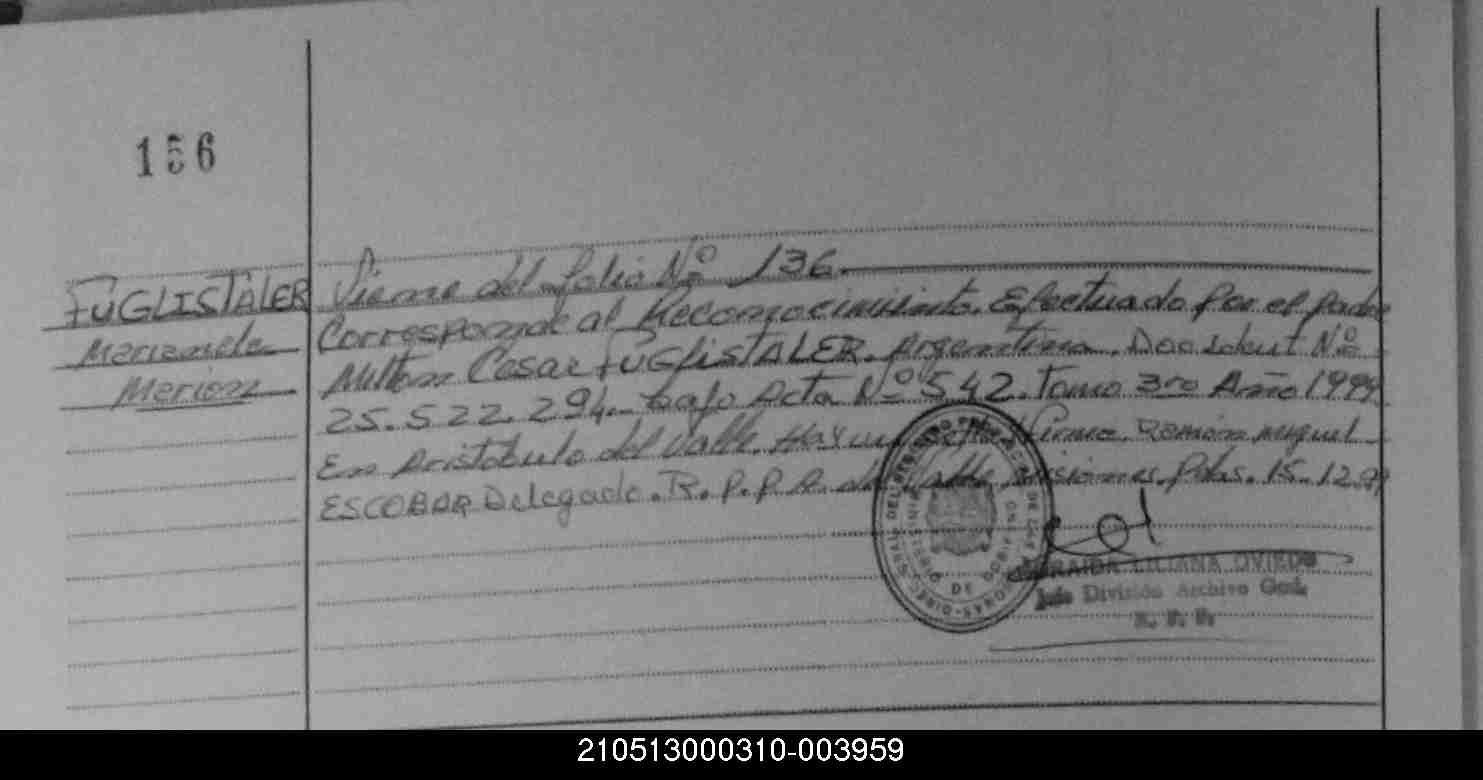 156
FUGLISTALER
Mariom
Viene del folio Nº 136.
Corresponde al Reconocimiento. Efectuado por el padre
Milton Cesar FUGLISTALER. Argentino. Doc Ident Nº
25.522.294. bajo Acta Nº 542. Tomo 3ro Año 1999.
En Aristobulo del Valle. Firma. Ramón Miguel
ESCOBAR Delegado. R.P.P. Valle Misiones. Pdas. 15.12.99
LILIANA OVIEDO
Jefe División Archivo Gral.
R. P. P.
MINISTERIO DE GOBIERNO
210513000310-003959